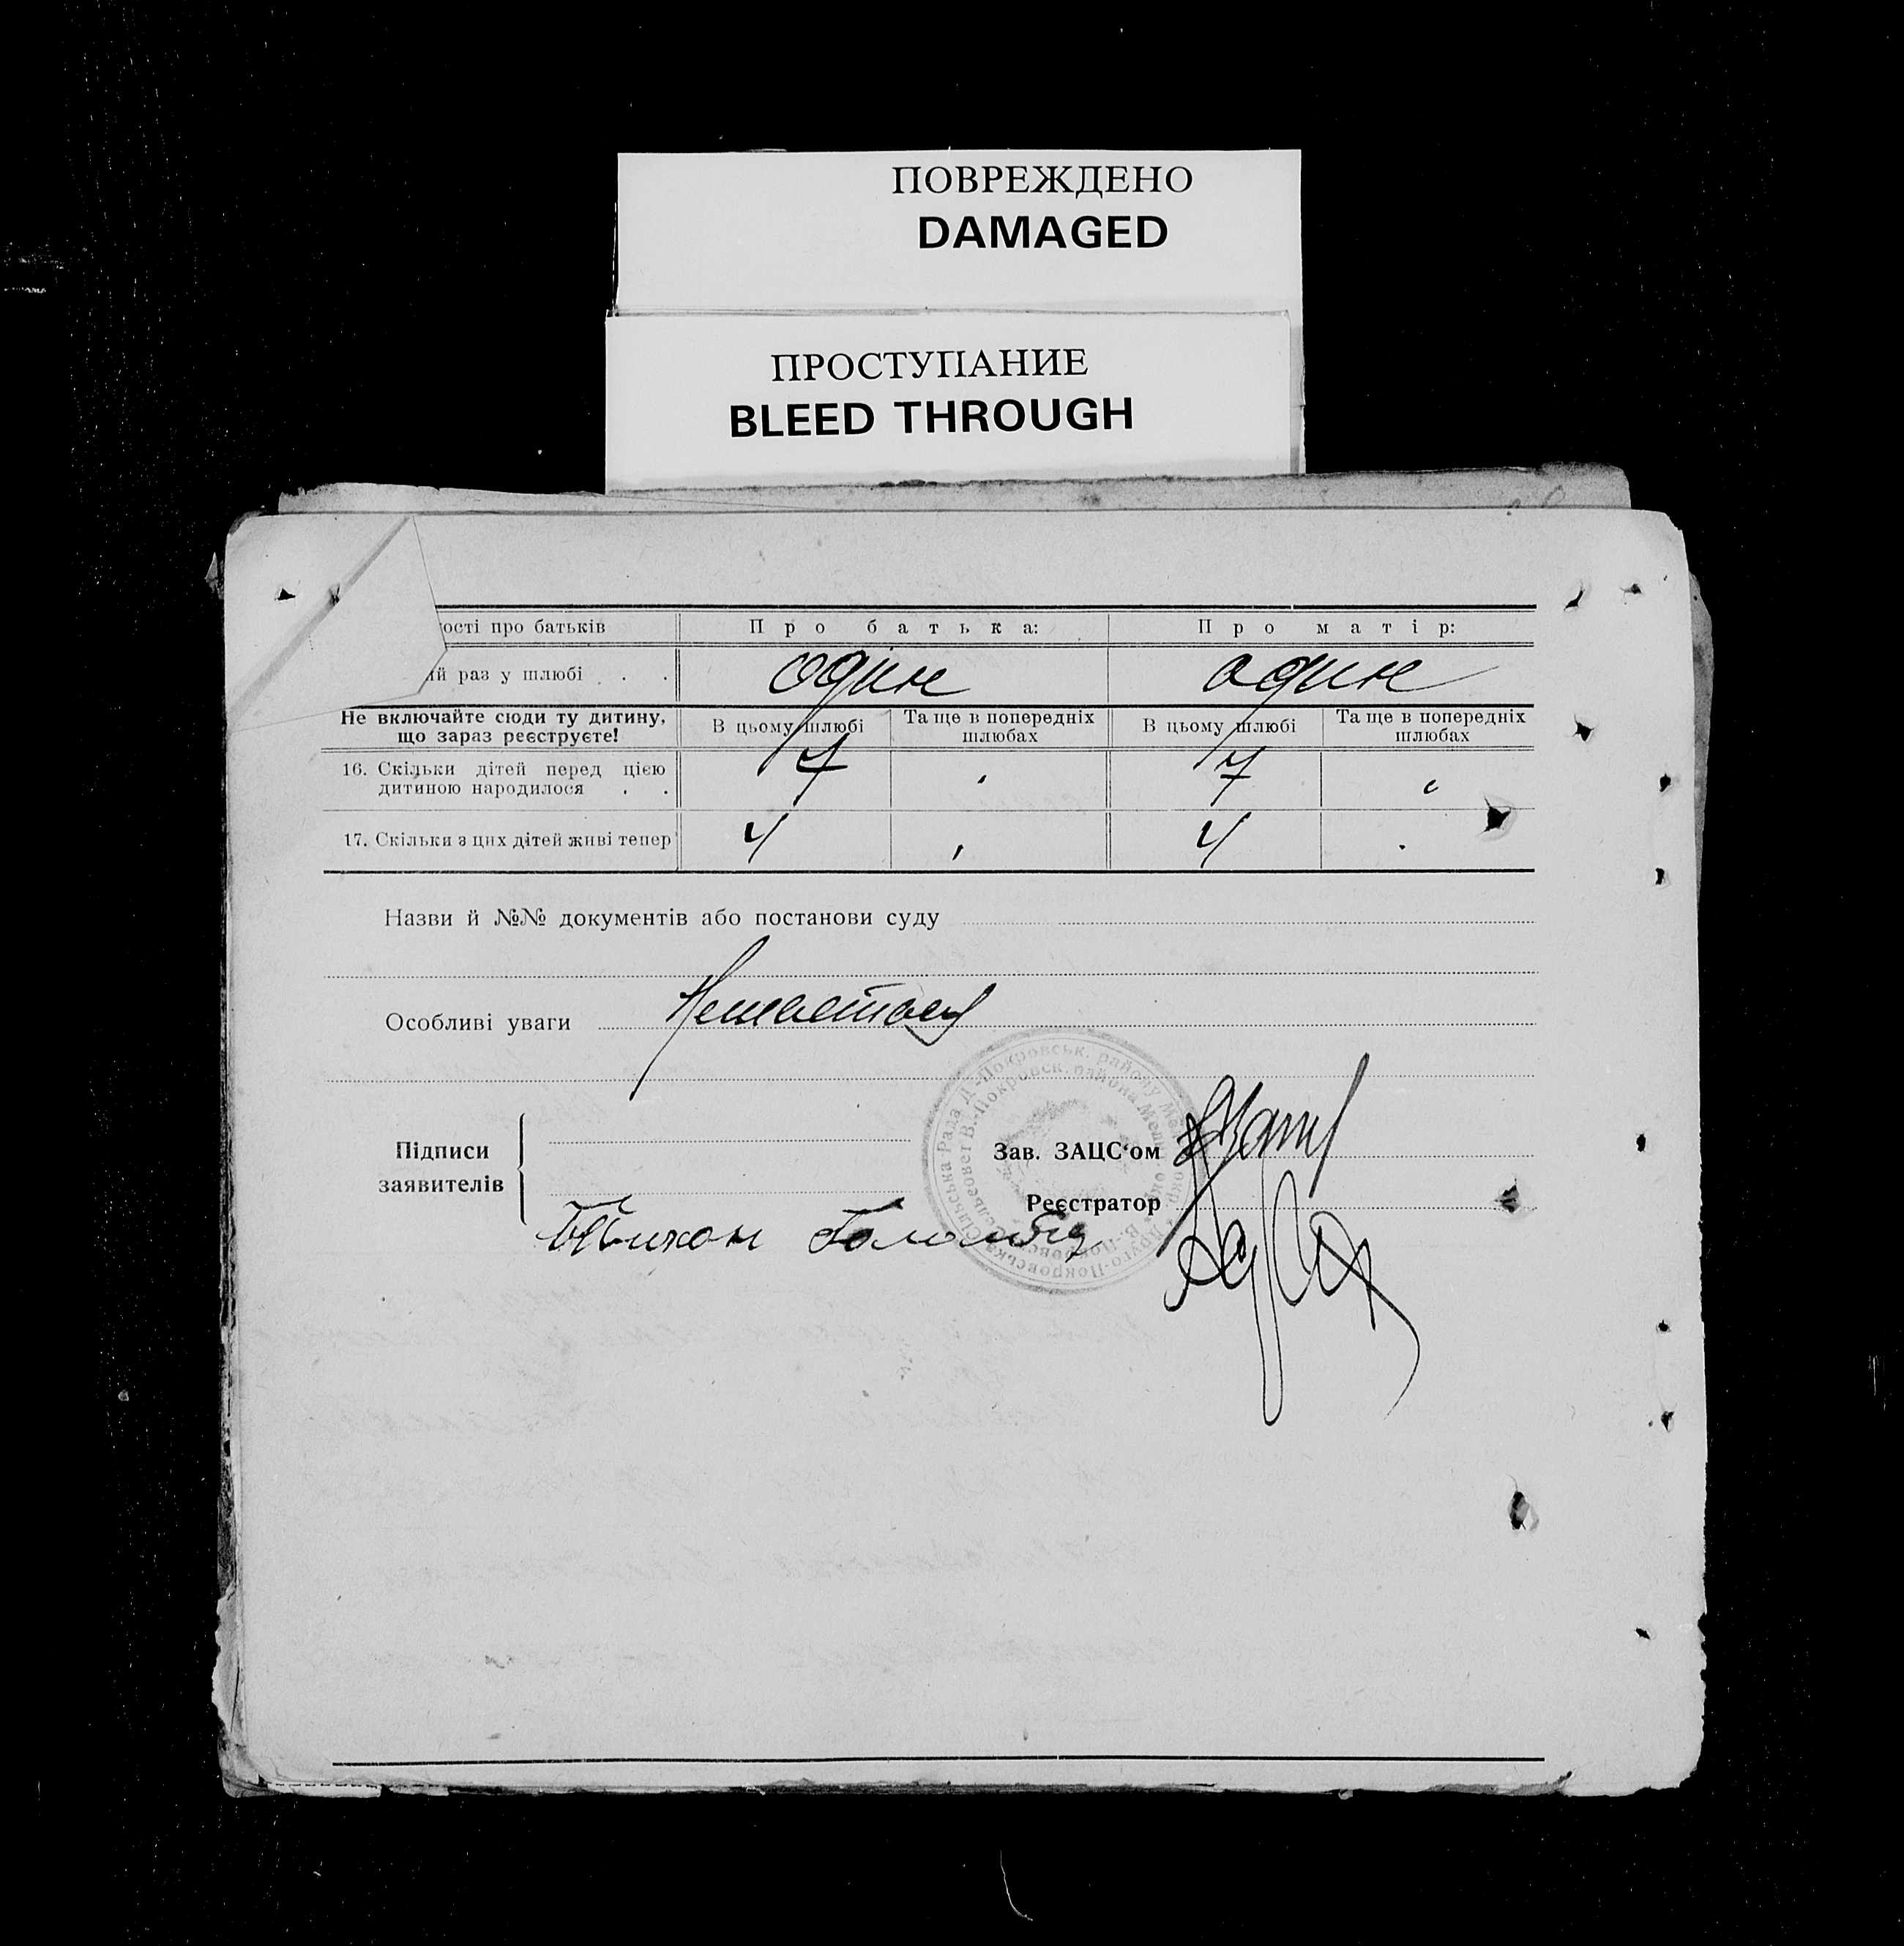 ПОВРЕЖДЕНО
DAMAGED
ПРОСТУПАНИЕ
BLEED THROUGH
ості про батьків Про батька: Про матір:
ій раз у шлюбі . . один один
Не включайте сюди ту дитину, що зараз реєструєте! В цьому шлюбі Та ще в попередніх шлюбах В цьому шлюбі Та ще в попередніх шлюбах
16. Скільки дітей перед цією
дитиною народилося . . 7 7
17. Скільки з цих дітей живі тепер 4 4
Назви й №№ документів або постанови суду
Особливі уваги
Підписи
заявителів
Зав. ЗАЦС‘ом
Реєстратор
Сільська Рада Д.-Покровськ. району
Друго-Покровська
Сельсовет В.-Покровск. района